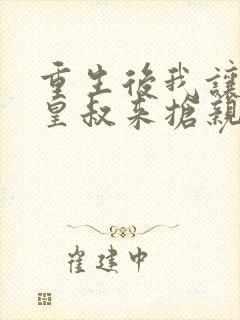 重生後我讓
皇叔来搶親
崔建中